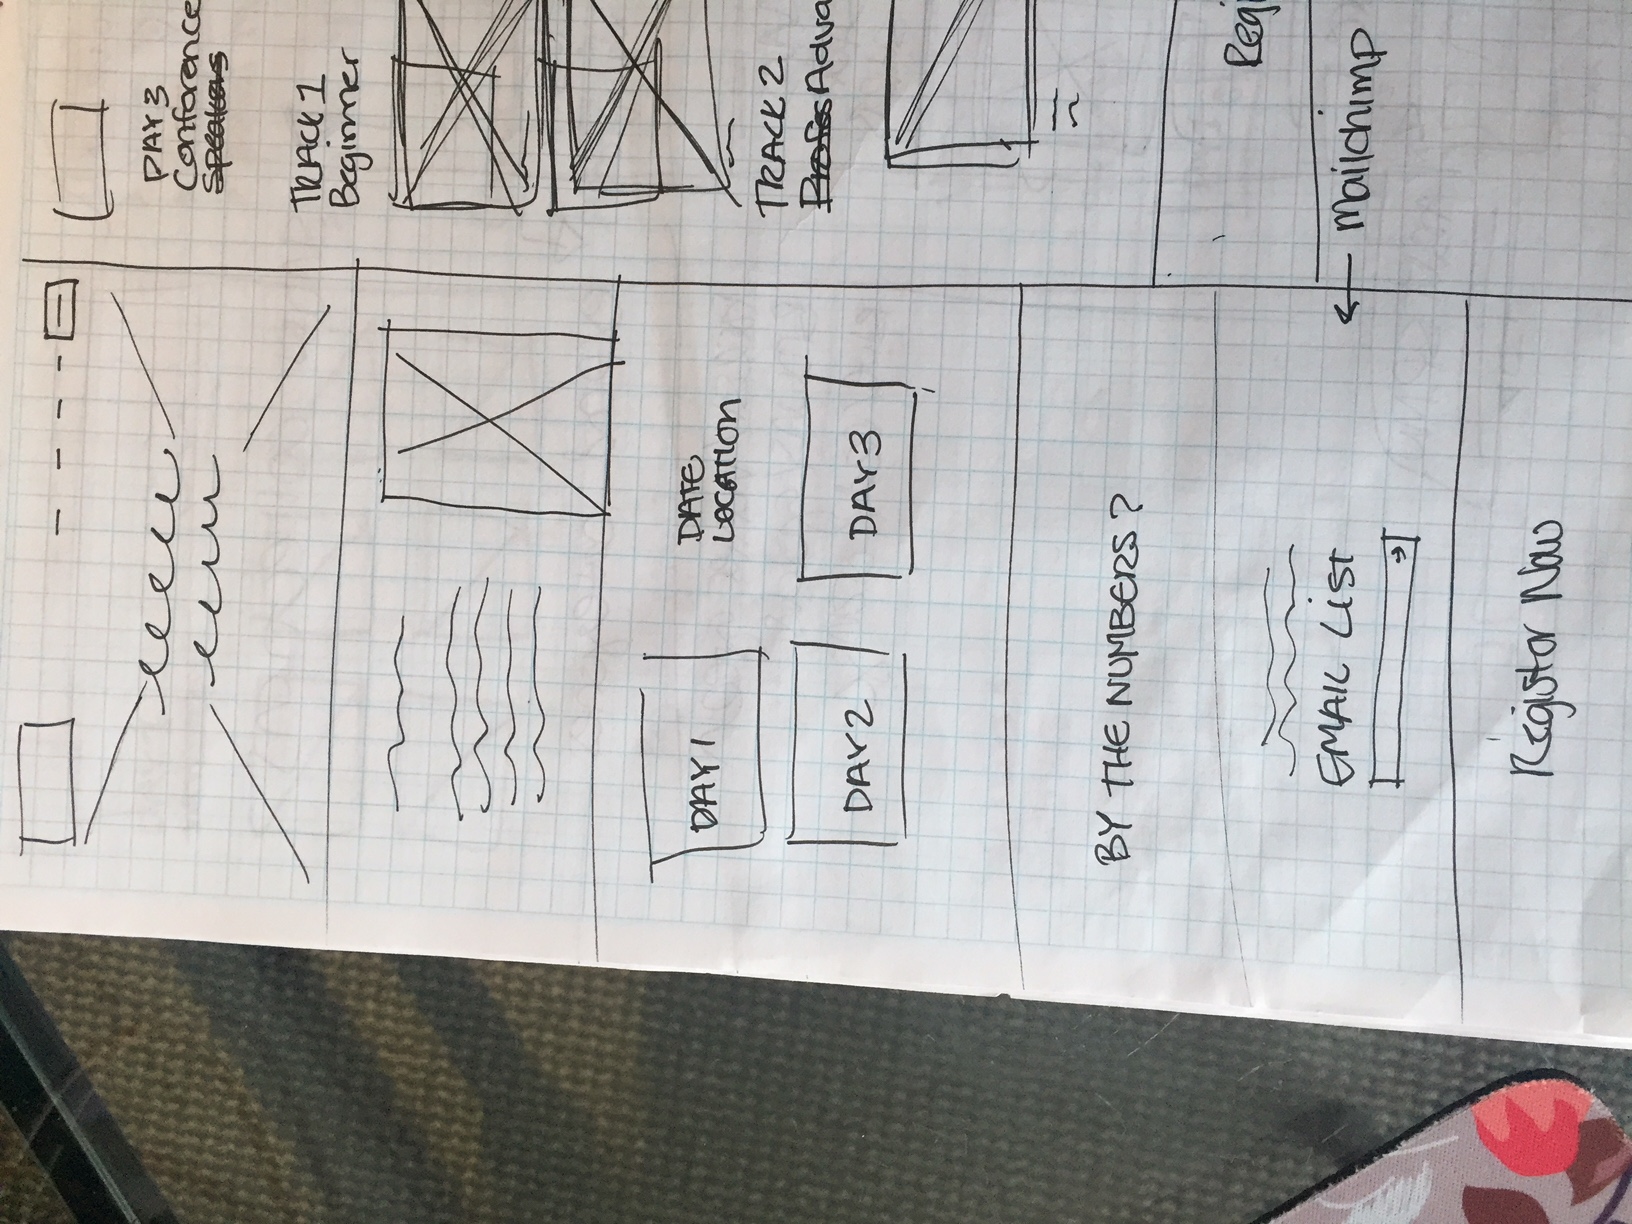 DAY 1
DATE
LOCATION
DAY 2
DAY 3
BY THE NUMBERS?
EMAIL LIST
Registor Now
DAY 3
Conference
Speakers
TRACK 1
Beginner
TRACK 2
Profes Adva
Regi
Mailchimp